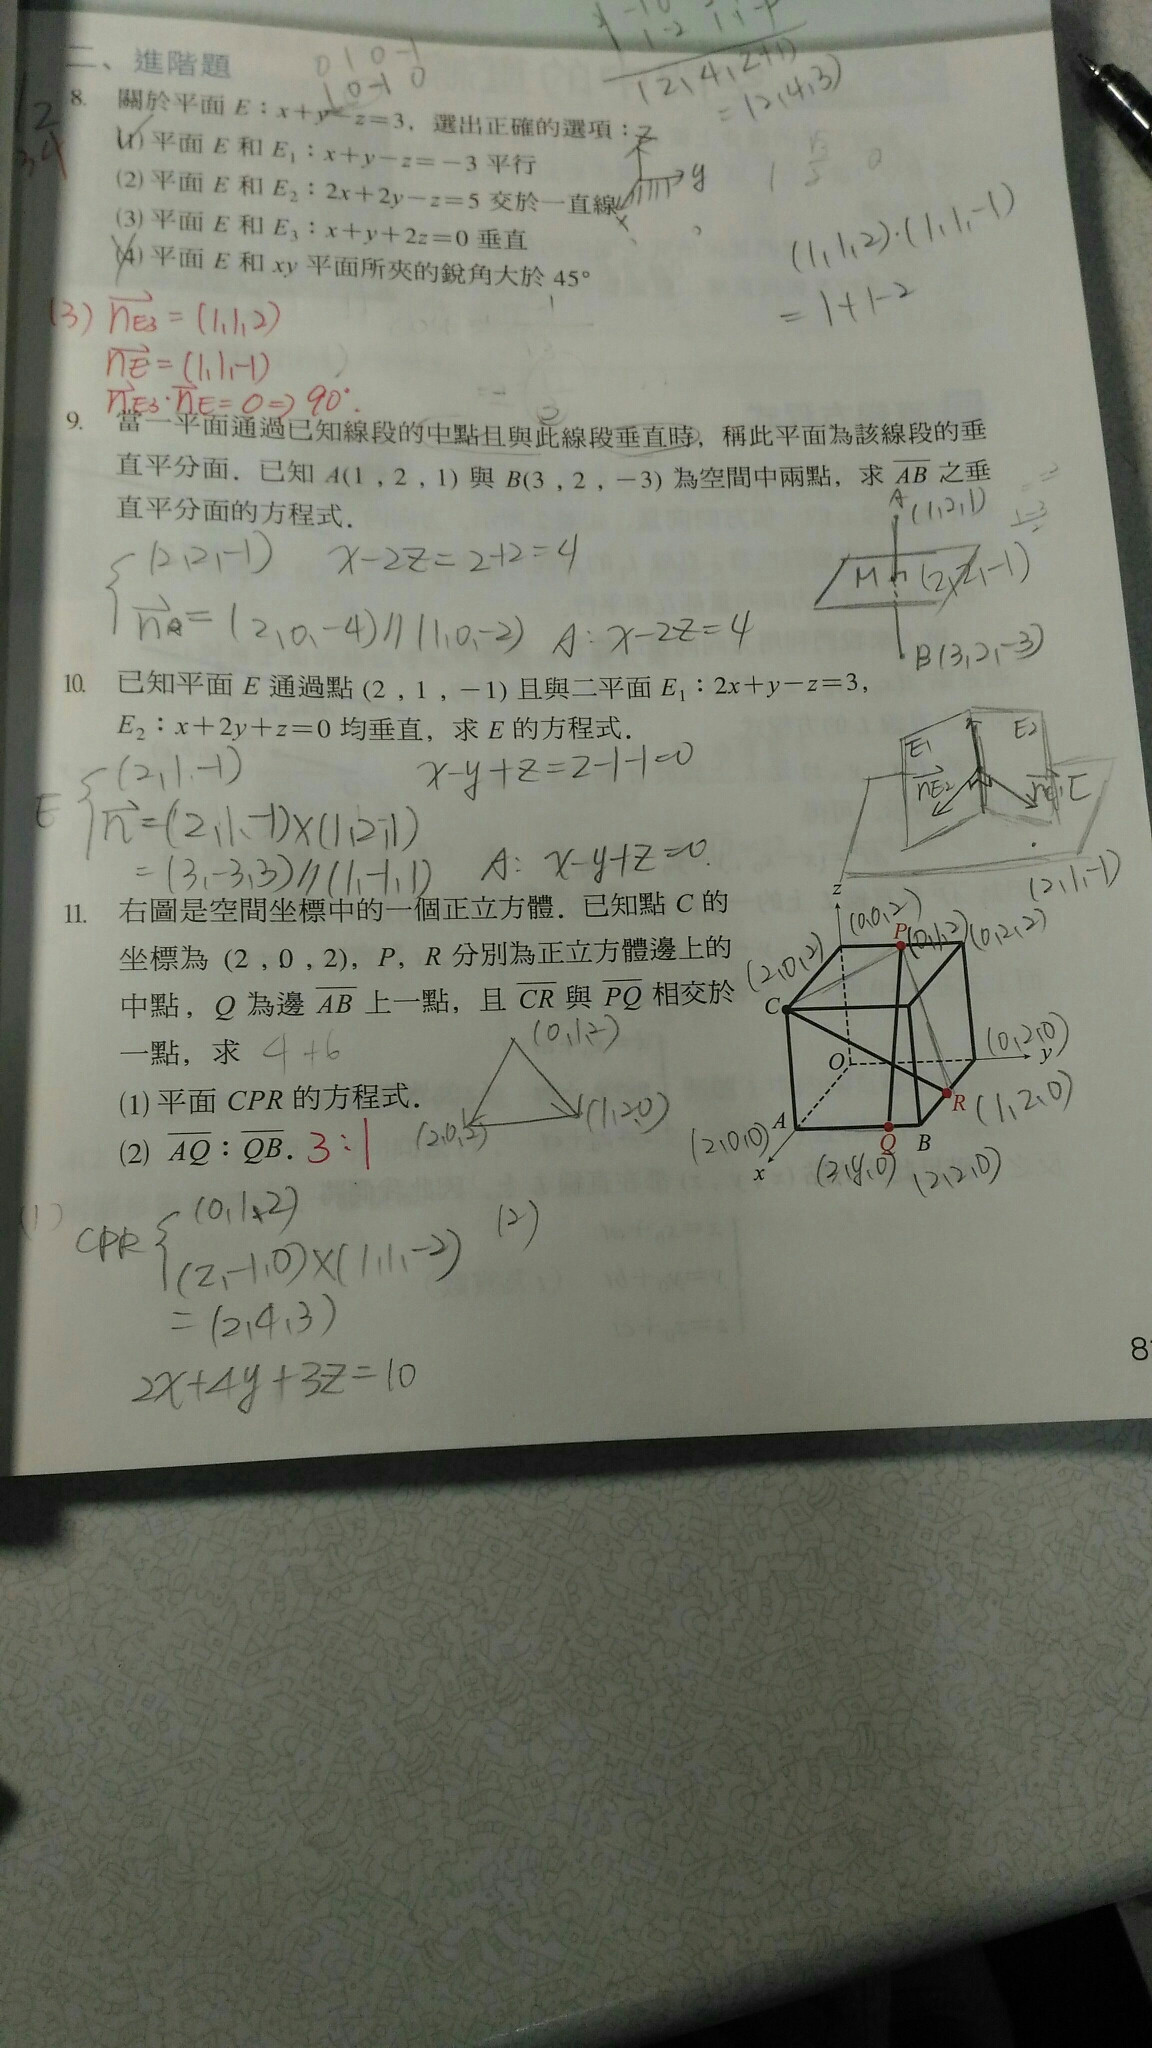 二、進階題
0 1 0 -1
1 0 -1 0
(2,4,2+1)
=(2,4,3)
8. 關於平面 E：x+y-z=3，選出正確的選項：
(1) 平面 E 和 E₁：x+y-z=-3 平行
(2) 平面 E 和 E₂：2x+2y-z=5 交於一直線
(3) 平面 E 和 E₃：x+y+2z=0 垂直
(4) 平面 E 和 xy 平面所夾的銳角大於 45°
z
y
x
(1,1,2)·(1,1,-1)
=1+1-2
(3) n_E3=(1,1,2)
n_E=(1,1,-1)
n_E3·n_E=0⇒90°.
9. 當一平面通過已知線段的中點且與此線段垂直時，稱此平面為該線段的垂
直平分面．已知 A(1，2，1) 與 B(3，2，-3) 為空間中兩點，求 AB 之垂
直平分面的方程式．
(2,2,-1) x-2z=2+2=4
n=(2,0,-4)//(1,0,-2) A: x-2z=4
A(1,2,1)
M (2,2,-1)
B(3,2,-3)
10. 已知平面 E 通過點 (2，1，-1) 且與二平面 E₁：2x+y-z=3，
E₂：x+2y+z=0 均垂直，求 E 的方程式．
E (2,1,-1) x-y+z=2-1-1=0
n=(2,1,-1)×(1,2,1)
=(3,-3,3)//(1,-1,1) A: x-y+z=0.
E1 E2
n_E2 E
(2,1,-1)
11. 右圖是空間坐標中的一個正立方體．已知點 C 的
坐標為 (2，0，2)，P，R 分別為正立方體邊上的
中點，Q 為邊 AB 上一點，且 CR 與 PQ 相交於
一點，求 4+6
(1) 平面 CPR 的方程式．
(2) AQ：QB． 3:1
(0,1,2)
(2,0,2) (1,2,0)
z (0,0,2)
(2,0,2) P (0,1,2) (0,2,2)
C
O (0,2,0) y
R (1,2,0)
(2,0,0) A Q B
x (2,y,0) (2,2,0)
(1) CPR (0,1,2) (2)
(2,-1,0)×(1,1,-2)
=(2,4,3)
2x+4y+3z=10